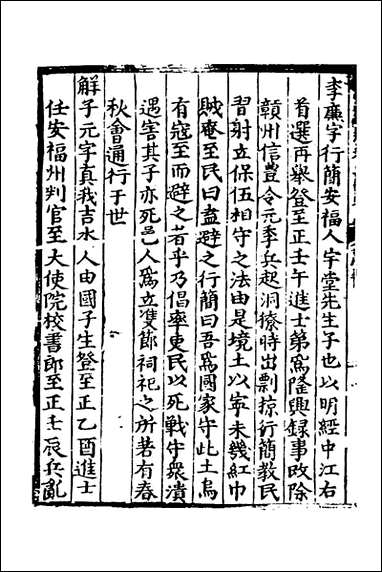 李廉字行簡安福人宇堂先生子也以明經中江右
首選再舉登至正壬午進士第爲隆興録事改除
贛州信豐令元季兵起洞獠時出剽掠行簡教民
習射立保伍相守之法由是境土以寧未幾紅巾
賊奄至民曰盍避之行簡曰吾爲國家守此土烏
有寇至而避之者乎乃倡率吏民以死戰守衆潰
遇害其子亦死邑人爲立雙節祠祀之所若有春
秋會通行于世
解子元字真我吉水人由國子生登至正乙酉進士
任安福州判官至太使院校書郎至正壬辰兵亂